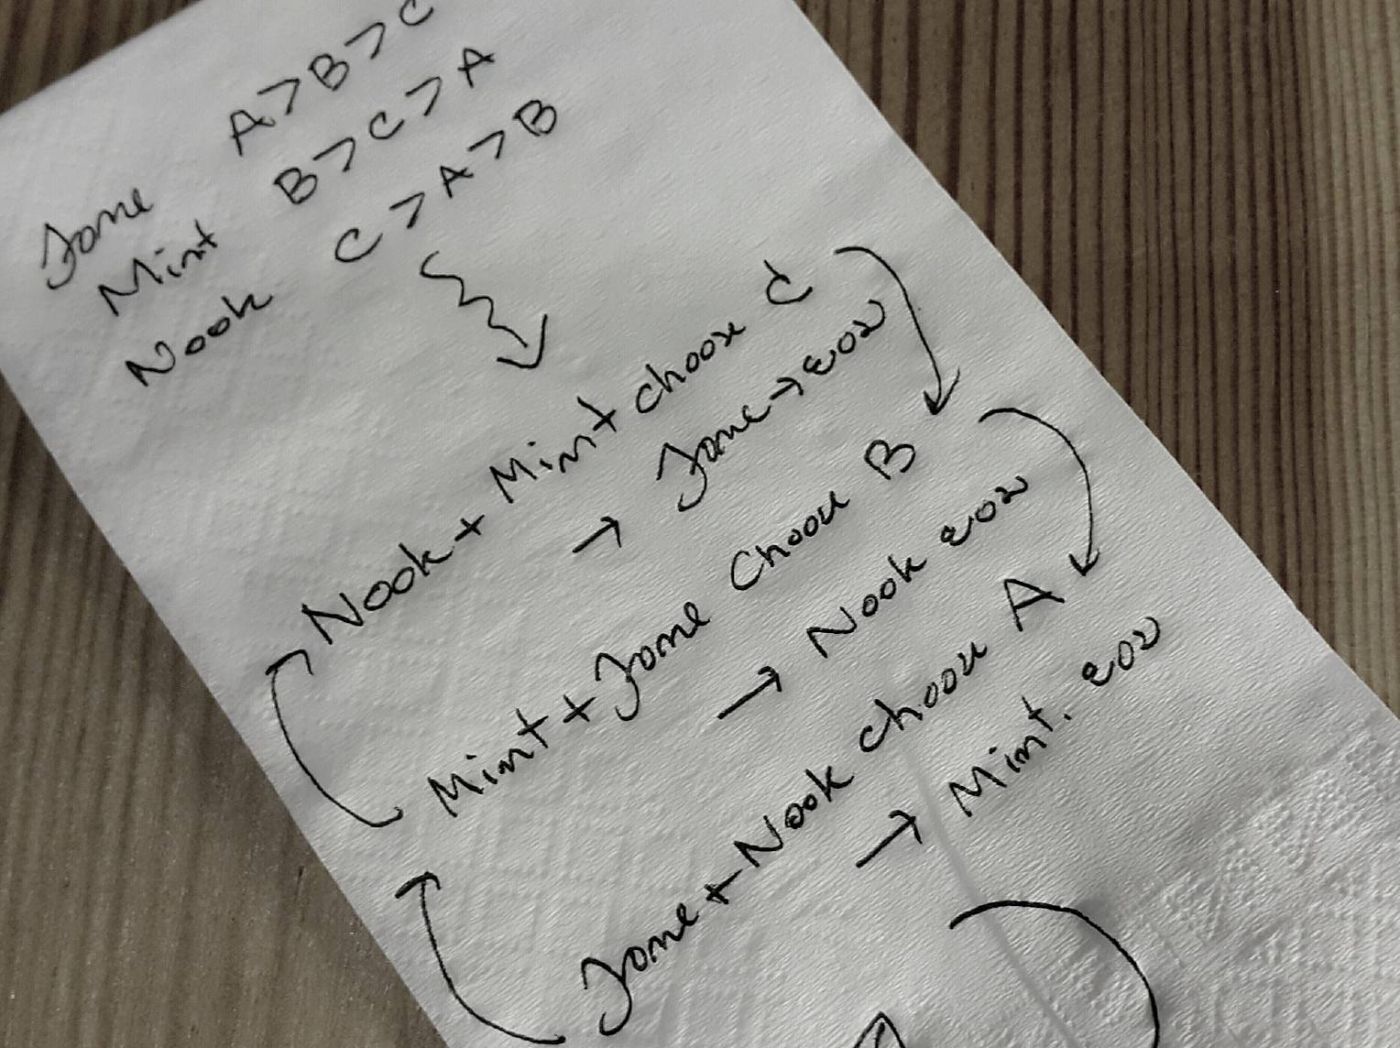 Jane A>B>C
Mint B>C>A
Nook C>A>B
Nook + Mint choose C
→ Jane →
Mint + Jane Choose B
→ Nook
Jane + Nook choose A
→ Mint.